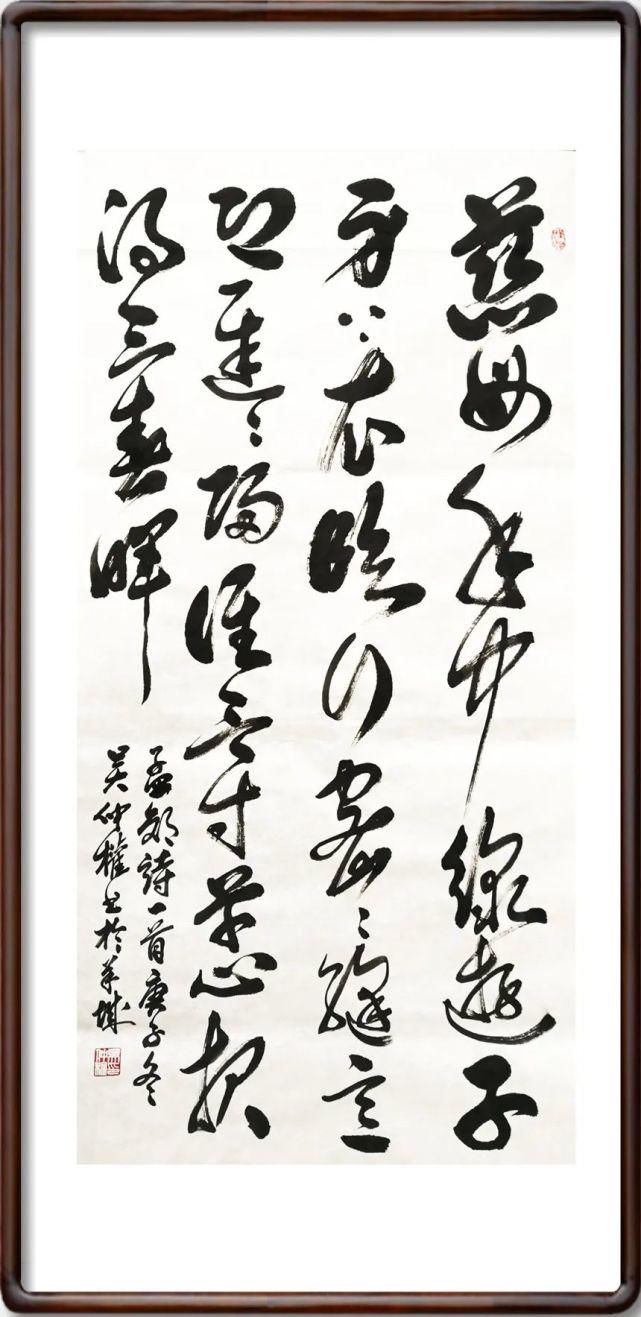 慈母手中線遊子
身上衣臨行密〻縫意
恐遲〻歸誰言寸草心報
得三春暉
孟郊詩一首庚子冬
吴仲權书於羊城